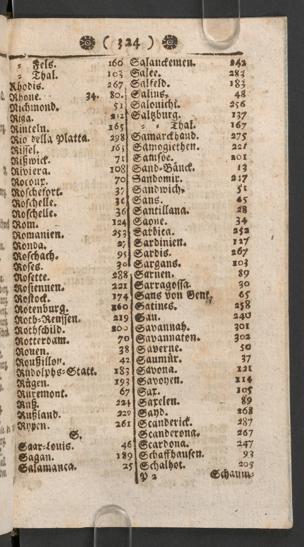 ( 324 )
= Fels. 160
= Thal. 103
Rhodis. 267
Rhone. 34. 80.
Richmond. 51
Riga. 212
Rinteln. 165
Rio della Platta. 298
Rissel. 163
Rißwick. 71
Riviera. 108
Rocour. 70
Rochefort. 37
Rochelle. 36
Roschelle. 36
Rom. 124
Romanien. 253
Ronda. 27
Roschach. 95
Roses. 30
Rosette. 288
Rosiennen. 221
Rostock. 174
Rotenburg. 160
Roth-Reussen. 219
Rothschild. 200
Rotterdam. 70
Rouen. 38
Roußillon. 42
Rudolphs-Statt. 183
Rügen. 193
Rüremont. 67
Ruß. 224
Rußland. 229
Rypen. 261
S.
Saar-Louis. 46
Sagan. 189
Salamanca. 25
Salanckemen. 242
Salee. 283
Salfeld. 183
Salins. 48
Salonichi. 256
Saltzburg. 137
= = Thal. 167
Samarckand. 275
Samogiethen. 221
Samsoe. 201
Sand-Bänck. 13
Sandomir. 217
Sandwich. 51
Sans. 45
Santillana. 28
Saone. 34
Sarbiea. 252
Sardinien. 127
Sardis. 267
Sargans. 103
Sarnen. 89
Sarragossa. 30
Sans von Gent. 65
Satines. 258
Sau. 240
Savannah. 301
Savannaton. 302
Saverne. 50
Saumür. 37
Savona. 121
Savoyen. 114
Sax. 105
Saxelen. 89
Sayd. 268
Scanderick. 287
Scanderona. 267
Scardona. 247
Schaffhausen. 93
Schalholt. 205
Y 2 Schaum-